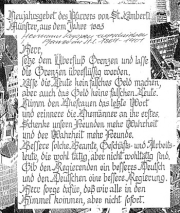 Neujahrsgebet des Pfarrers von St. Lamberti
Münster, aus dem Jahre 1883
Herr,
setze dem Überfluß Grenzen und lasse
die Grenzen überflüssig werden.
Lasse die Leute kein falsches Geld machen,
aber auch das Geld keine falschen Leute.
Nimm den Ehefrauen das letzte Wort
und erinnere die Ehemänner an ihr erstes.
Schenke unsern Freunden mehr Wahrheit
und der Wahrheit mehr Freunde.
Bessere solche Beamte, Geschäfts- und Arbeits-
leute, die wohl tätig, aber nicht wohltätig sind.
Gib den Regierenden ein besseres Deutsch
und den Deutschen eine bessere Regierung.
Herr sorge dafür, daß wir alle in den
Himmel kommen, aber nicht sofort.